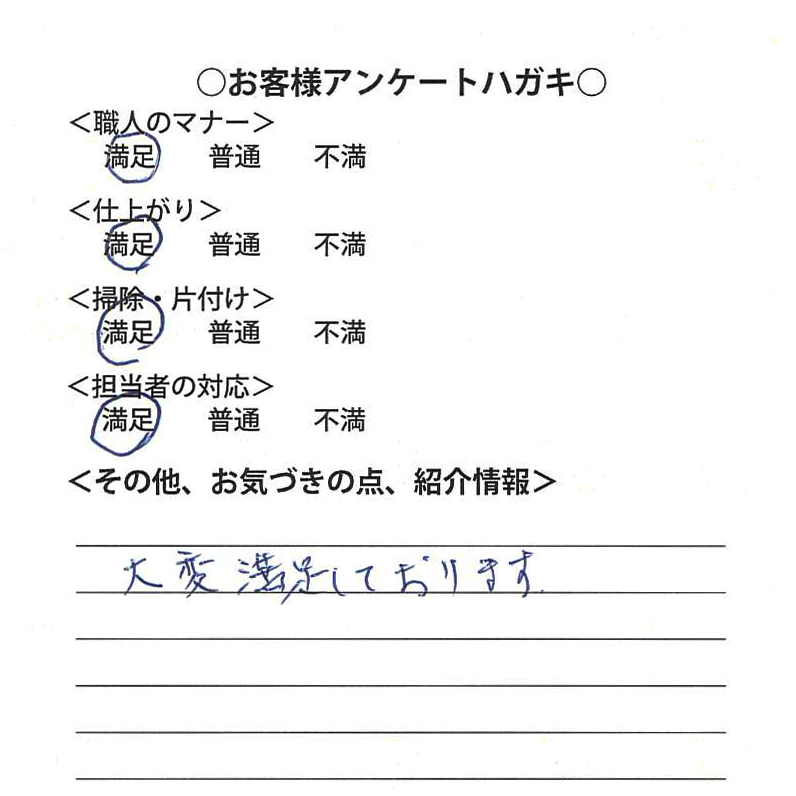 ○お客様アンケートハガキ○
＜職人のマナー＞
満足 普通 不満
＜仕上がり＞
満足 普通 不満
＜掃除・片付け＞
満足 普通 不満
＜担当者の対応＞
満足 普通 不満
＜その他、お気づきの点、紹介情報＞
大変満足しております.